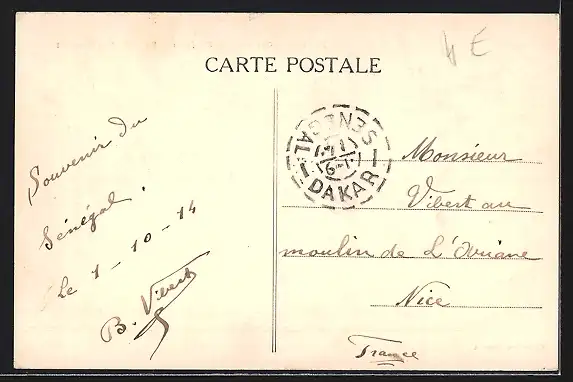 CARTE POSTALE
Souvenir du
Sénégal.
Le 1-10-14
B. Vibert
SENEGAL
DAKAR
Monsieur
Vibert au
moulin de L'Ariane
Nice
France